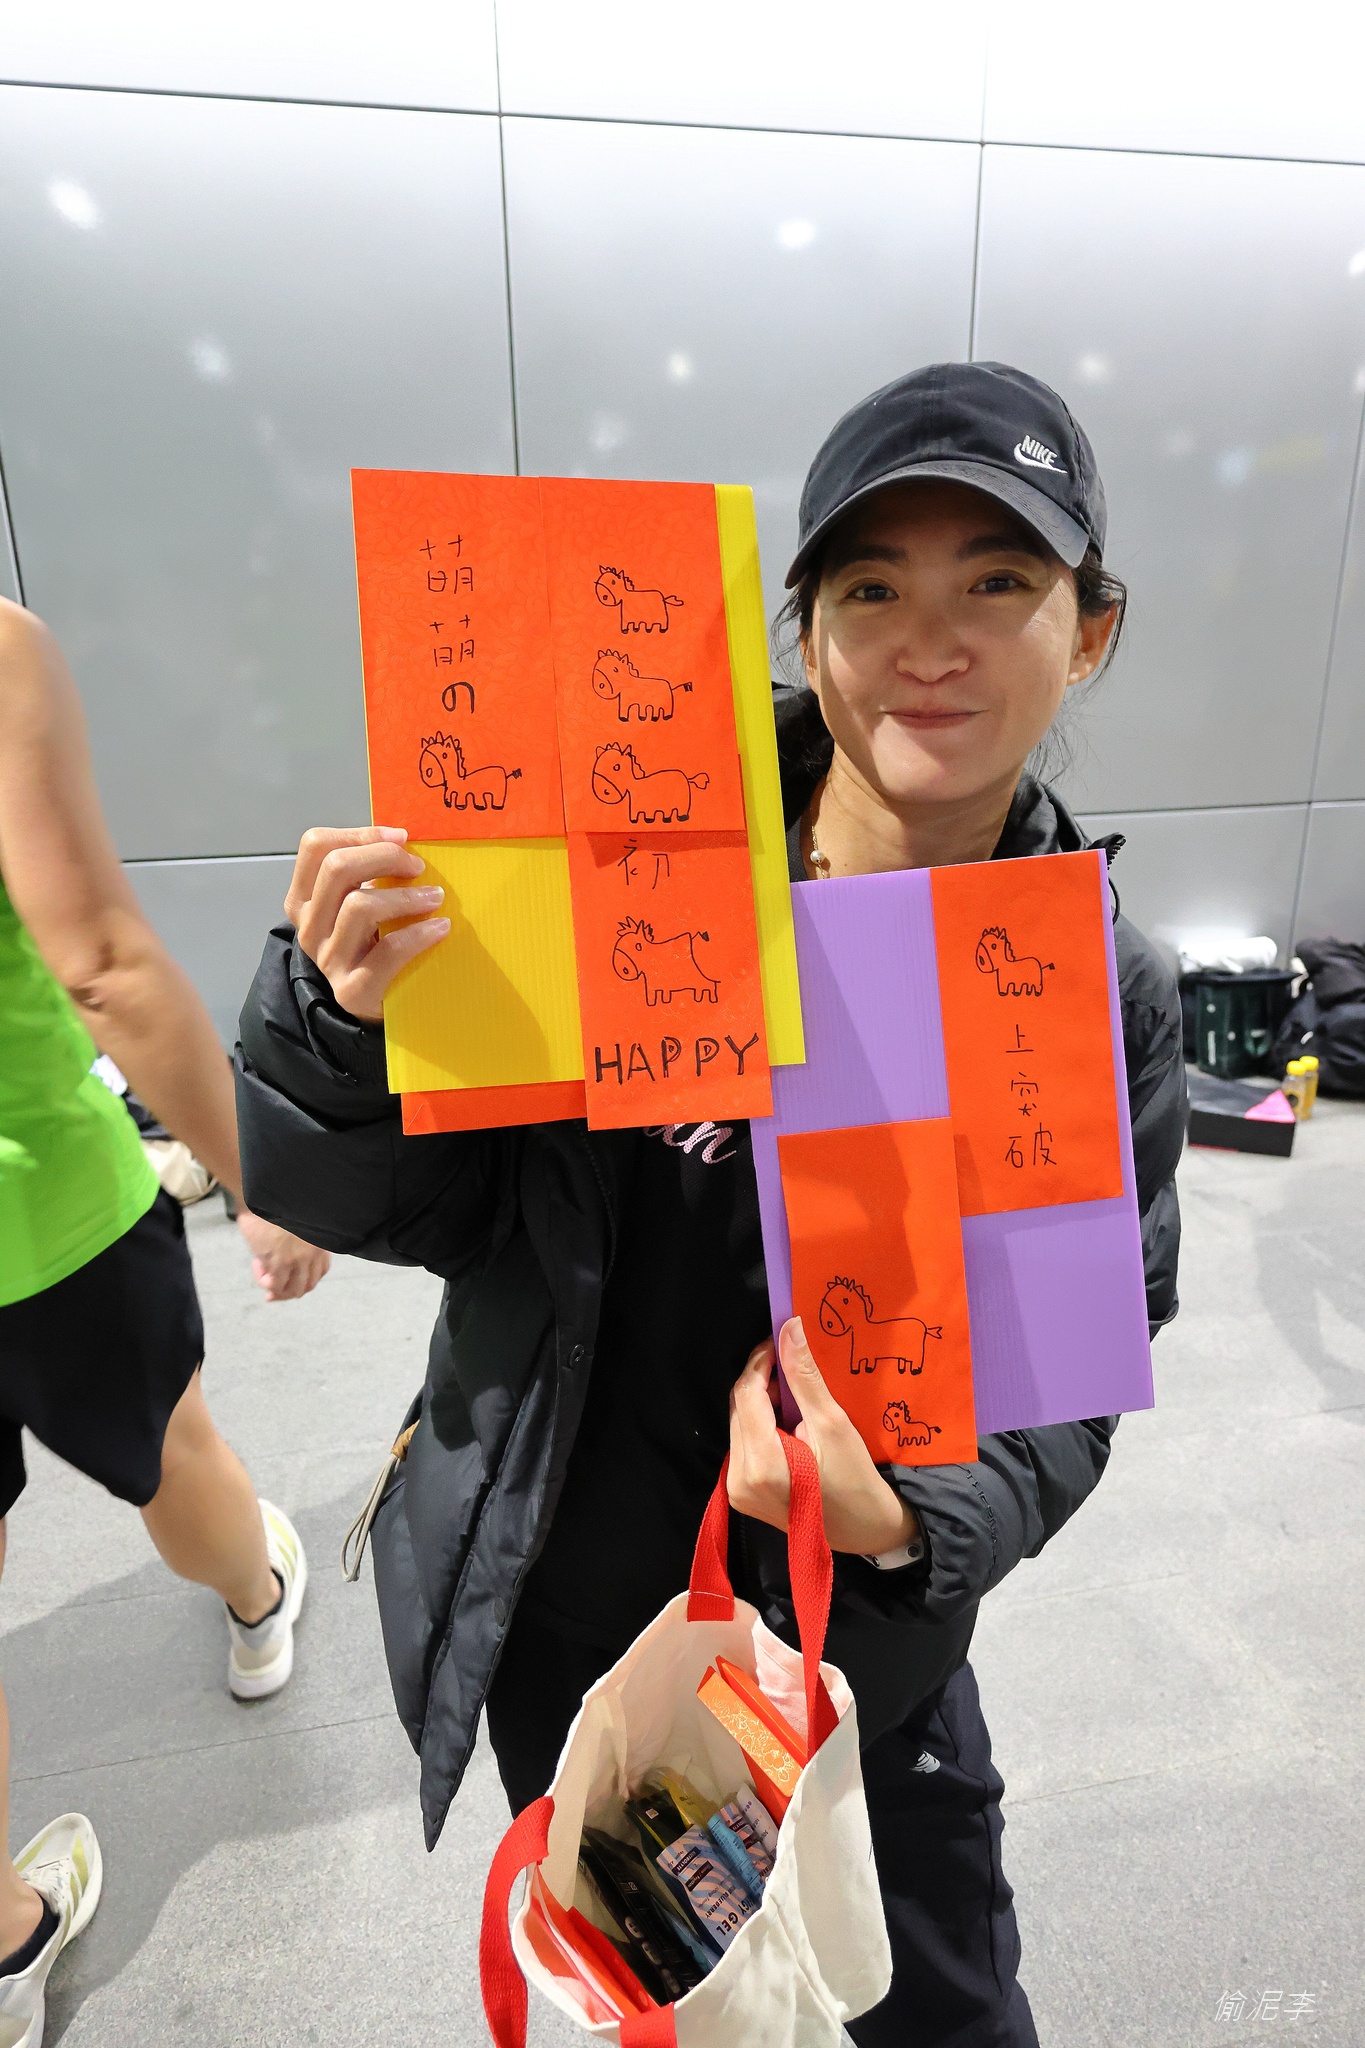 NIKE
萌
萌
の
初
HAPPY
上
突
破
GEL
偷泥李